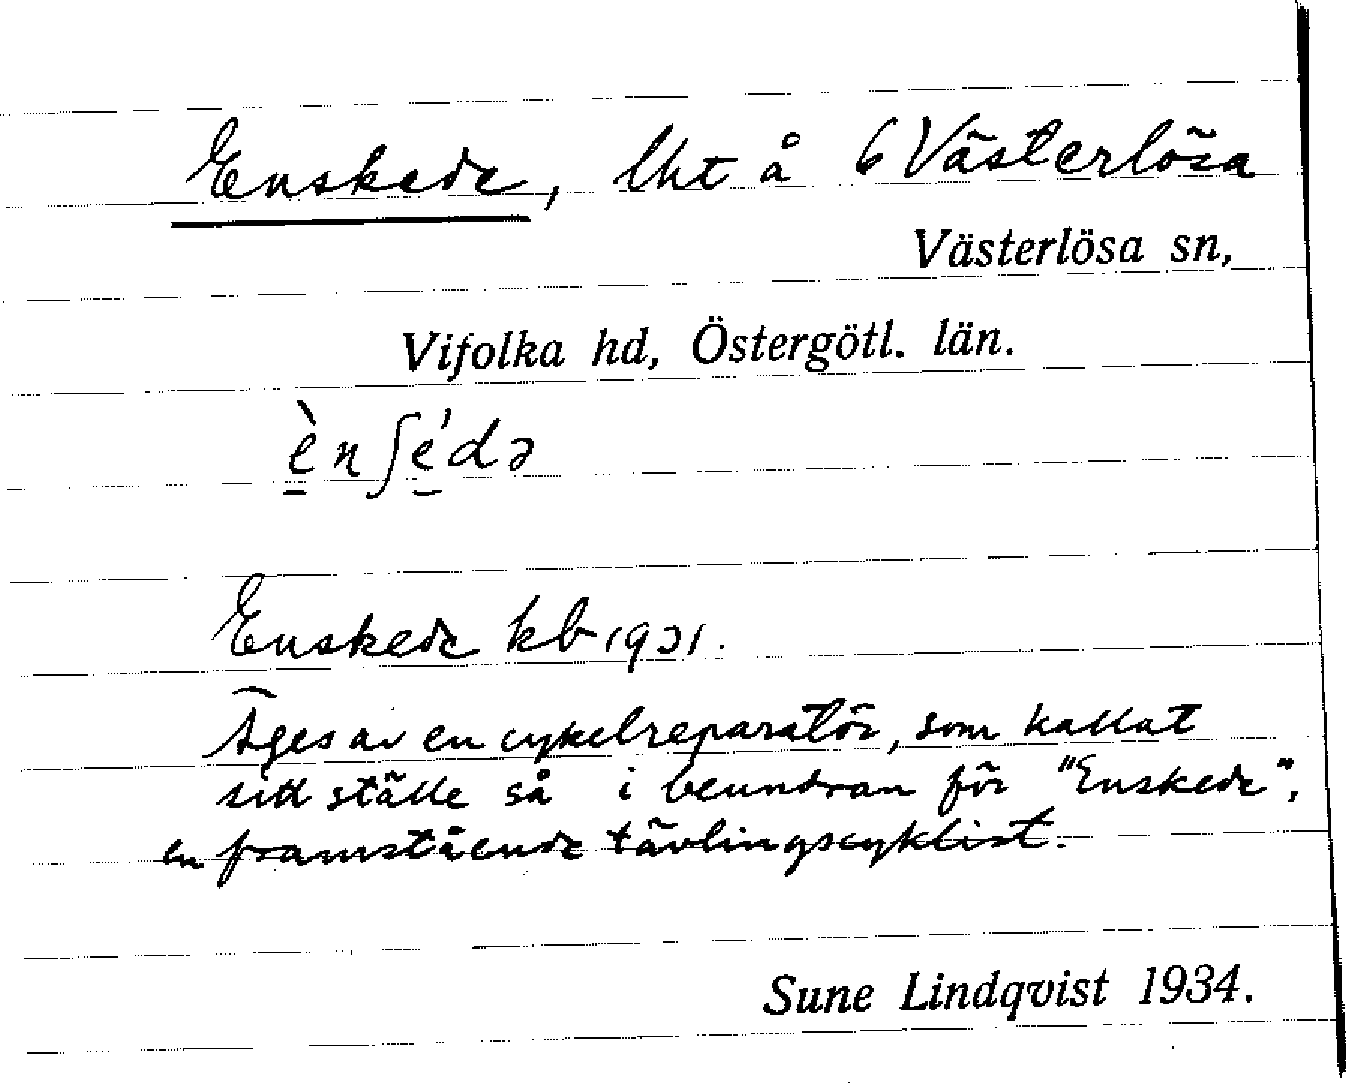 Enskede, lht å 6 Västerlösa
Västerlösa sn,
Vifolka hd, Östergötl. län.
è̱nʃé̱də
Enskede kb 1931.
Äges av en cykelreparatör, som kallat
sitt ställe så i beundran för "Enskede",
en framstående tävlingscyklist.
Sune Lindqvist 1934.